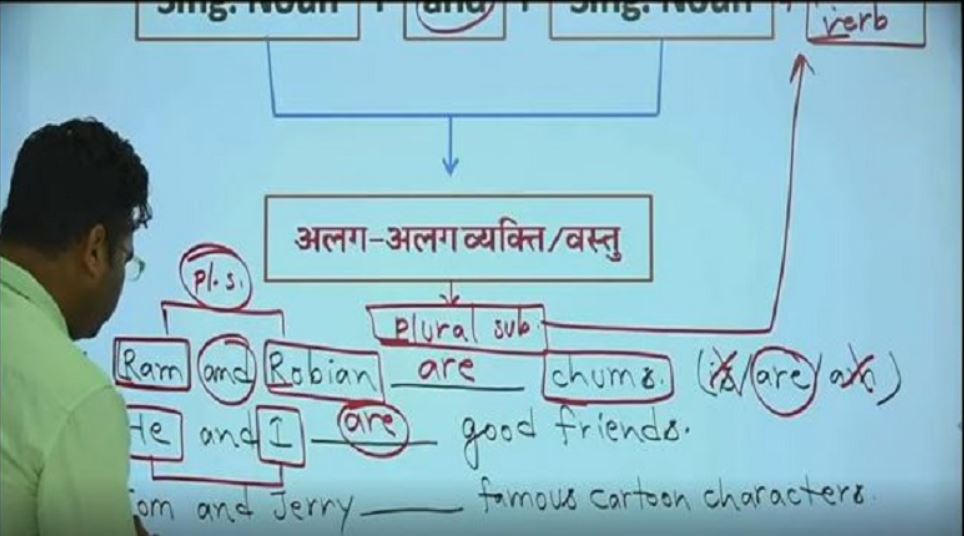 Sing. Noun + and + Sing. Noun +
verb
अलग-अलग व्यक्ति/वस्तु
pl. s.
plural sub.
Ram and Robian are chums. (is/are/am)
He and I are good friends.
Tom and Jerry ____ famous cartoon characters.